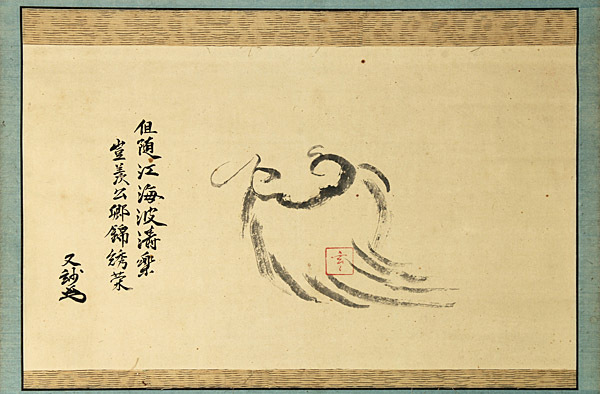 但随江海波濤楽
豈羨公卿錦綉栄
又玅